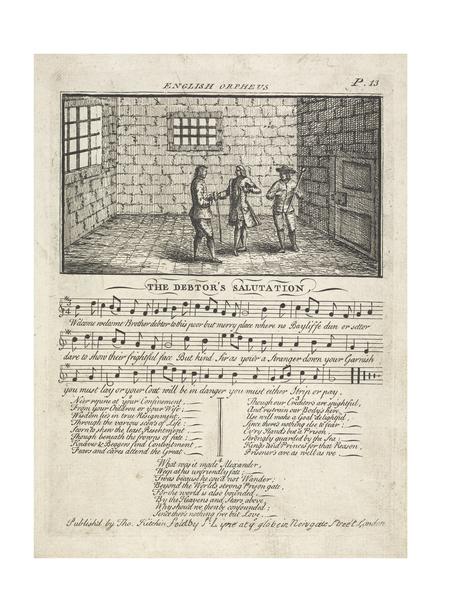 ENGLISH ORPHEUS
P. 13
THE DEBTOR'S SALUTATION
Welcome welcome Brother debtor to this poor but merry place where no Bayliffe dun or setter
dare to show their frightful face But kind Sir as you'r a Stranger down your Garnish
you must lay or your Coat will be in danger you must either Strip or pay.
2
Ne'er repine at your Confinement,
From your Children or your Wife;
Wisdom lies in true Resignment,
Through the various scenes of Life:
Scorn to shew the least Resentment,
Though beneath the frowns of fate:
Knaves & Beggars find Contentment
Fears and cares attend the Great
3
Though our Creditors are spightful,
And restrain our Bodys here,
Use will make a Goal delightful,
Since there's nothing else to fear:
Ev'ry Island's but a Prison,
Strongly guarded by the Sea:
Kings and Princes for that Reason,
Prisoner's are as well as we
4
What was it made Alexander,
Weep at his unfriendly fate:
Twas because he cou'd not Wander;
Beyond the World's strong Prison gate,
For the world is also bounded
By the Heavens and Stars above,
Why should we then be confounded:
Since there's nothing free but Love
Publish'd by Tho. Kitchin Sold by P. Lyne at ye globe in Newgate Street London